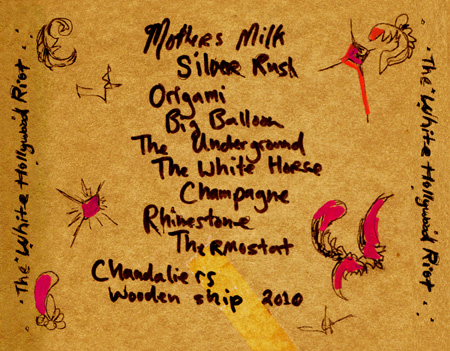 Mothers Milk
Silver Rush
Origami
Big Balloon
The Underground
The White Horse
Champagne
Rhinestone
Thermostat
Chandaliers
Wooden ship 2010
The White Hollywood Riot
The White Hollywood Riot